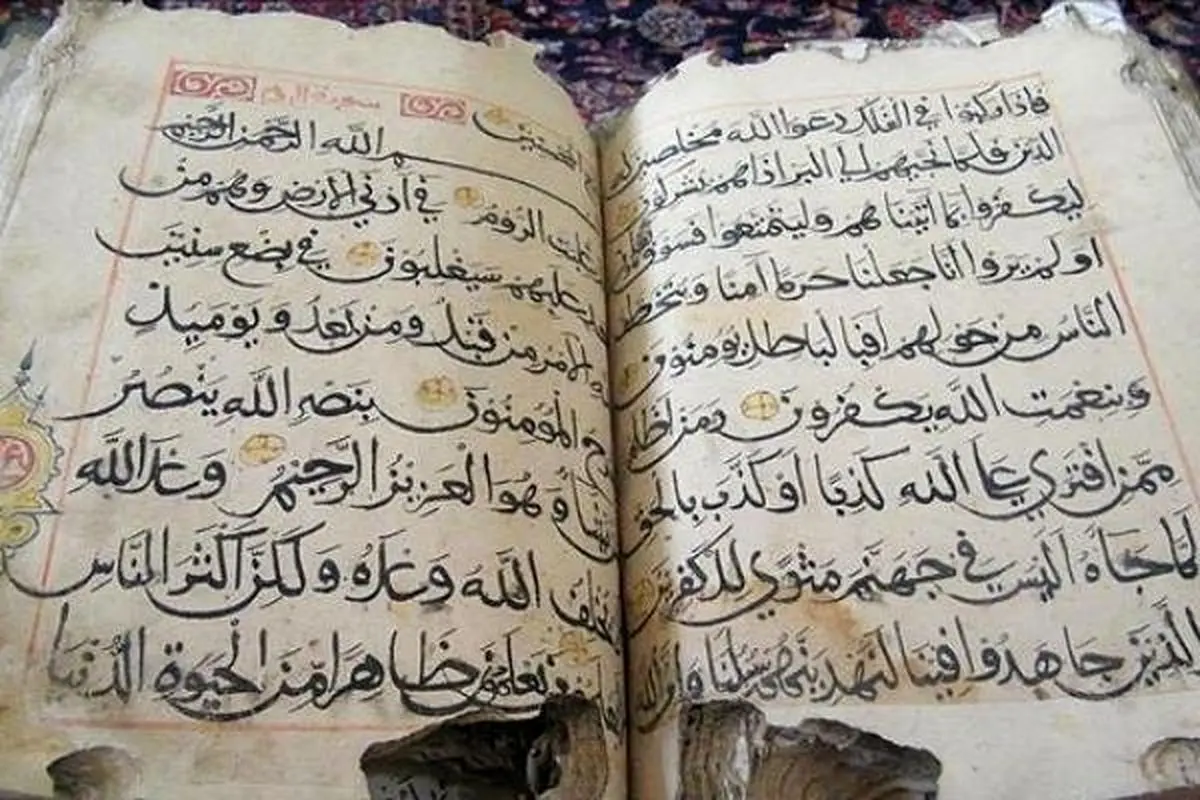 فاذا ركبوا في الفلك دعوا الله مخلصين له
الدين فلما نجيهم الي البر اذا هم يشركون
ليكفروا بما اتيناهم وليتمتعوا فسوف
اولم يروا انا جعلنا حرما آمنا و يتخطف
الناس من حولهم افبالباطل يؤمنون
وبنعمت الله يكفرون ومن اظلم
ممن افتري علي الله كذبا او كذب بالحق
لما جاه اليس في جهنم مثوي للكفرين
والذين جاهدوا فينا لنهدينهم سبلنا وان الله
المحسنين
سورة الروم
بسم الله الرحمن الرحيم
غلبت الروم في ادني الارض وهم من
غلبهم سيغلبون في بضع سنين
الامر من قبل ومن بعد و يوميذ
المؤمنون بنصر الله ينصر
يشاء و هو العزيز الرحيم وعد الله
يخلف الله وعده ولكن اكثر الناس
يعلمون ظاهرا من الحيوة الدنيا